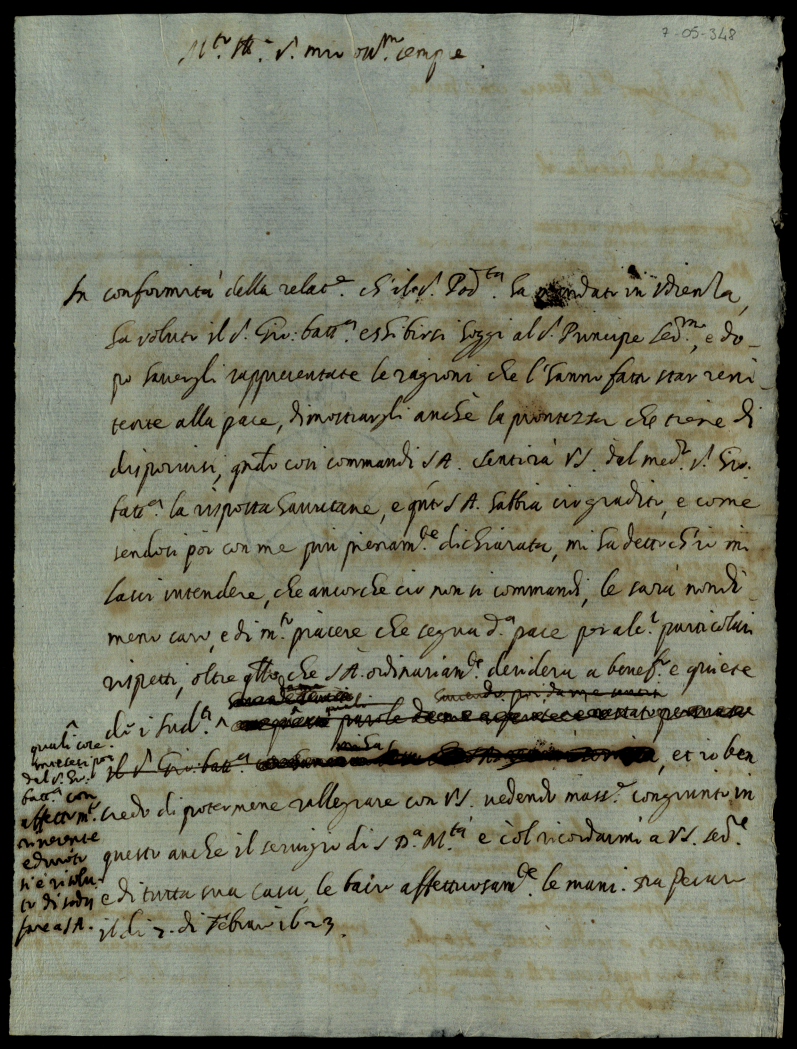 7-05-348
M.to Ill.re S.r mio oss.mo sempre.
In conformità della relat.e ch'il S.r Pod.tà ha mandati in Udienza,
ha voluto il S.r Gio: batt.a essibirsi hoggi al S.r Principe Ser.mo, e do-
po havergli rappresentate le ragioni che l'hanno fatto star reni-
tente alla pace, dimostrargli anche la prontezza che tiene di
disporvisi, q.ndo così commandi S A. Sentirà V.S. dal med.o S.r Gio.
batt.a la risposta havutane, e q.nto S A. habbia ciò gradito, e come
sendosi poi con me più pienam.te dichiarata, mi ha detto ch'io mi
lasci intendere, che ancorche ciò non si commandi, le sarà nondi-
meno caro, e di m.to piacere che segua d.a pace per alc.i particolari
rispetti, oltre q.llo che S A. ordinariam.te desidera a benef.o e quiete
de i sud.ti ^
il S.r Gio: batt.a mi ha , et io ben
credo di potermene rallegrare con V.S. vedendo mass.e congiunto in
questo anche il servigio di S D.a M.tà e col ricordarmi a V.S. ser.re
e di tutta sua casa, le bacio affettuosam.te le mani. Da Pesaro
il dì 2. di Febraio 1623.
quali cose
intesesi poi
dal S.r Gio:
batt.a con
affetto m.to
riverente
e divoto
si è risolu-
to di sodis
fare a S A.